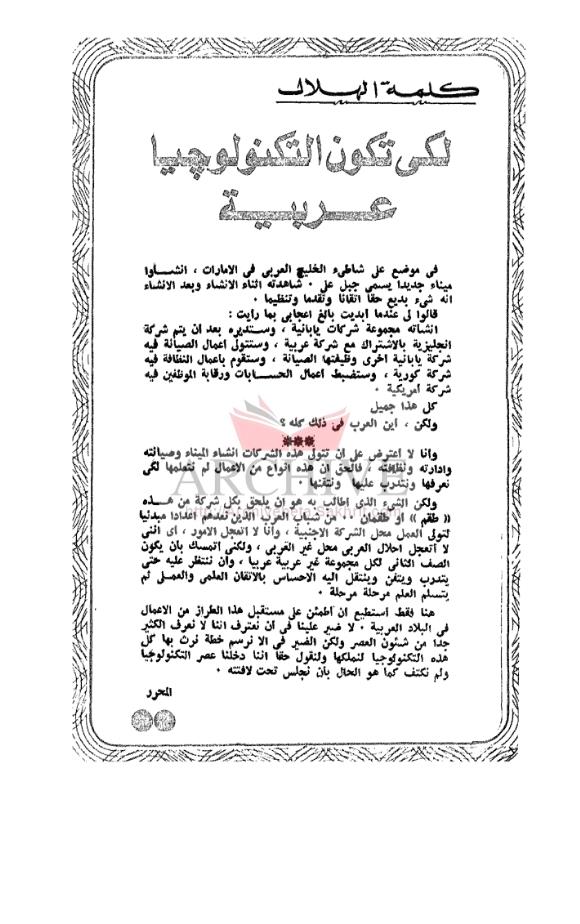 كلمة الهلال
لكى تكون التكنولوچيا
عربية
فى موضع على شاطىء الخليج العربى فى الامارات ، انشاوا
ميناء جديدا يسمى جبل على ٠ شاهدته اثناء الانشاء وبعد الانشاء
انه شىء بديع حقا اتقانا وتقدما وتنظيما ٠
قالوا لى عندما ابديت بالغ اعجابى بما رايت :
انشاته مجموعة شركات يابانية ، وستديره بعد ان يتم شركة
انجليزية بالاشتراك مع شركة عربية ، وستتولى اعمال الصيانة فيه
شركة يابانية اخرى وظيفتها الصيانة ، وستقوم باعمال النظافة فيه
شركة كورية ، وستضبط اعمال الحسابات ورقابة الموظفين فيه
شركة امريكية ٠
كل هذا جميل
ولكن ، اين العرب فى ذلك كله ؟
***
ARCHIVE
وانا لا اعترض على ان تتولى هذه الشركات انشاء الميناء وصيانته
وادارته ونظافته ، فالحق ان هذه انواع من الاعمال لم نتعلمها لكى
نعرفها ونتدرب عليها ونتقنها ٠
ولكن الشىء الذى اطالب به هو ان يلحق بكل شركة من هذه
« طقم » او طقمان ٠٠ من شباب العرب الذين نعدهم اعدادا مبدئيا
لتولى العمل محل الشركة الاجنبية ، وانا لا اتعجل الامور ، اى اننى
لا اتعجل احلال العربى محل غير العربى ، ولكنى اتمسك بان يكون
الصف الثانى لكل مجموعة غير عربية عربيا ، وان ننتظر عليه حتى
يتدرب ويتقن وينتقل اليه الاحساس بالاتقان العلمى والعملى ثم
يتسلم العلم مرحلة مرحلة ٠
هنا فقط استطيع ان اطمئن على مستقبل هذا الطراز من الاعمال
فى البلاد العربية ٠ لا ضير علينا فى ان نعترف اننا لا نعرف الكثير
جدا من شئون العصر ولكن الضير فى الا نرسم خطة نرث بها كل
هذه التكنولوجيا لنملكها ولنقول حقا اننا دخلنا عصر التكنولوجيا
ولم نكتف كما هو الحال بان نجلس تحت لافتته ٠
المحرر